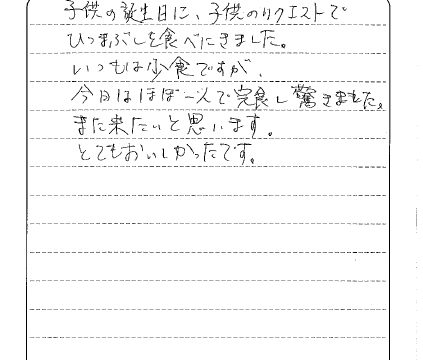 子供の誕生日に、子供のリクエストで
ひつまぶしを食べにきました。
いつもは少食ですが、
今日はほぼ一人で完食し驚きました。
また来たいと思います。
とてもおいしかったです。